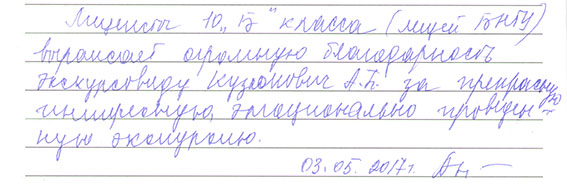 Лицеисты 10 „Б" класса (лицей БНТУ)
выражает огромную благодарность
экскурсоводу Кузеонович А.Б. за прекрасную
интересную, эмоционально проведен-
ную экскурсию.
03.05.2017г.